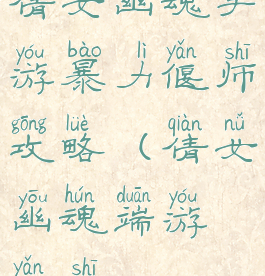 倩女幽魂手
yóu bào lì yǎn shī
游暴力偃师
gōng lüè qiàn nǚ
攻略（倩女
yōu hún duān yóu
幽魂端游
yǎn shī